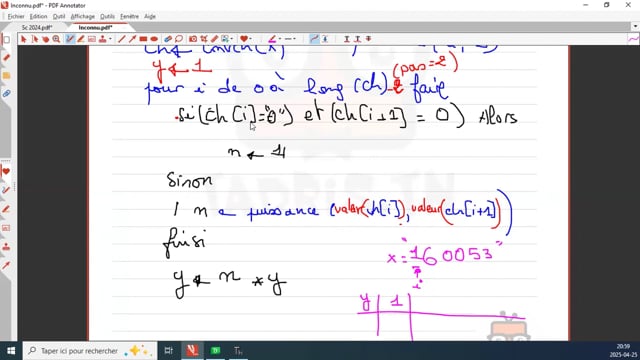 inconnu.pdf* - PDF Annotator
Fichier Edition Outils Affichage Fenêtre Aide
Sc 2024.pdf* inconnu.pdf*
y ← 1
(pas=2)
pour i de 0 à long(ch)-2 faire
si(ch[i]="0") et (ch[i+1] = 0) Alors
n ← 1
sinon
n ← puissance (valeur(ch[i]), valeur(ch[i+1]))
finsi
y ← n * y
x = "160053"
i
y 1
Taper ici pour rechercher
20:59
2025-04-25